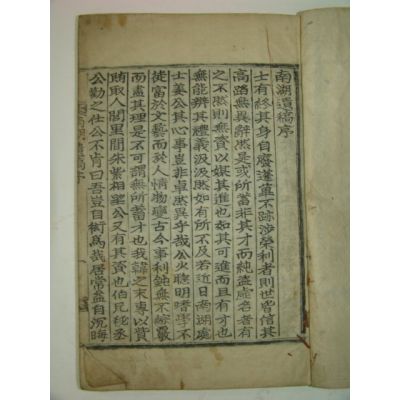 南湖遺稿序
士有終其身自廢蓬蓽不跡涉榮利者則世皆信其
高路無異辭然是或所蓄非其才而純盜虛名者有
之不然則無資以媒其進也如其可進而且有才也
無能辨其禮義汲汲然如有所不及若近日南湖處
士姜公其心事豈非卓然異乎哉公火聰明嗜學不
徒富於文藝而於人情物變古今事利鈍無不綜覈
而盡其理是不可謂無所蓄才也我韓之末專以貲
賄取人閭里間朱紫相望公又有其資也伯兄秘丞
公勸之仕公不肯曰吾豈自衒馬哉居常益自沉晦